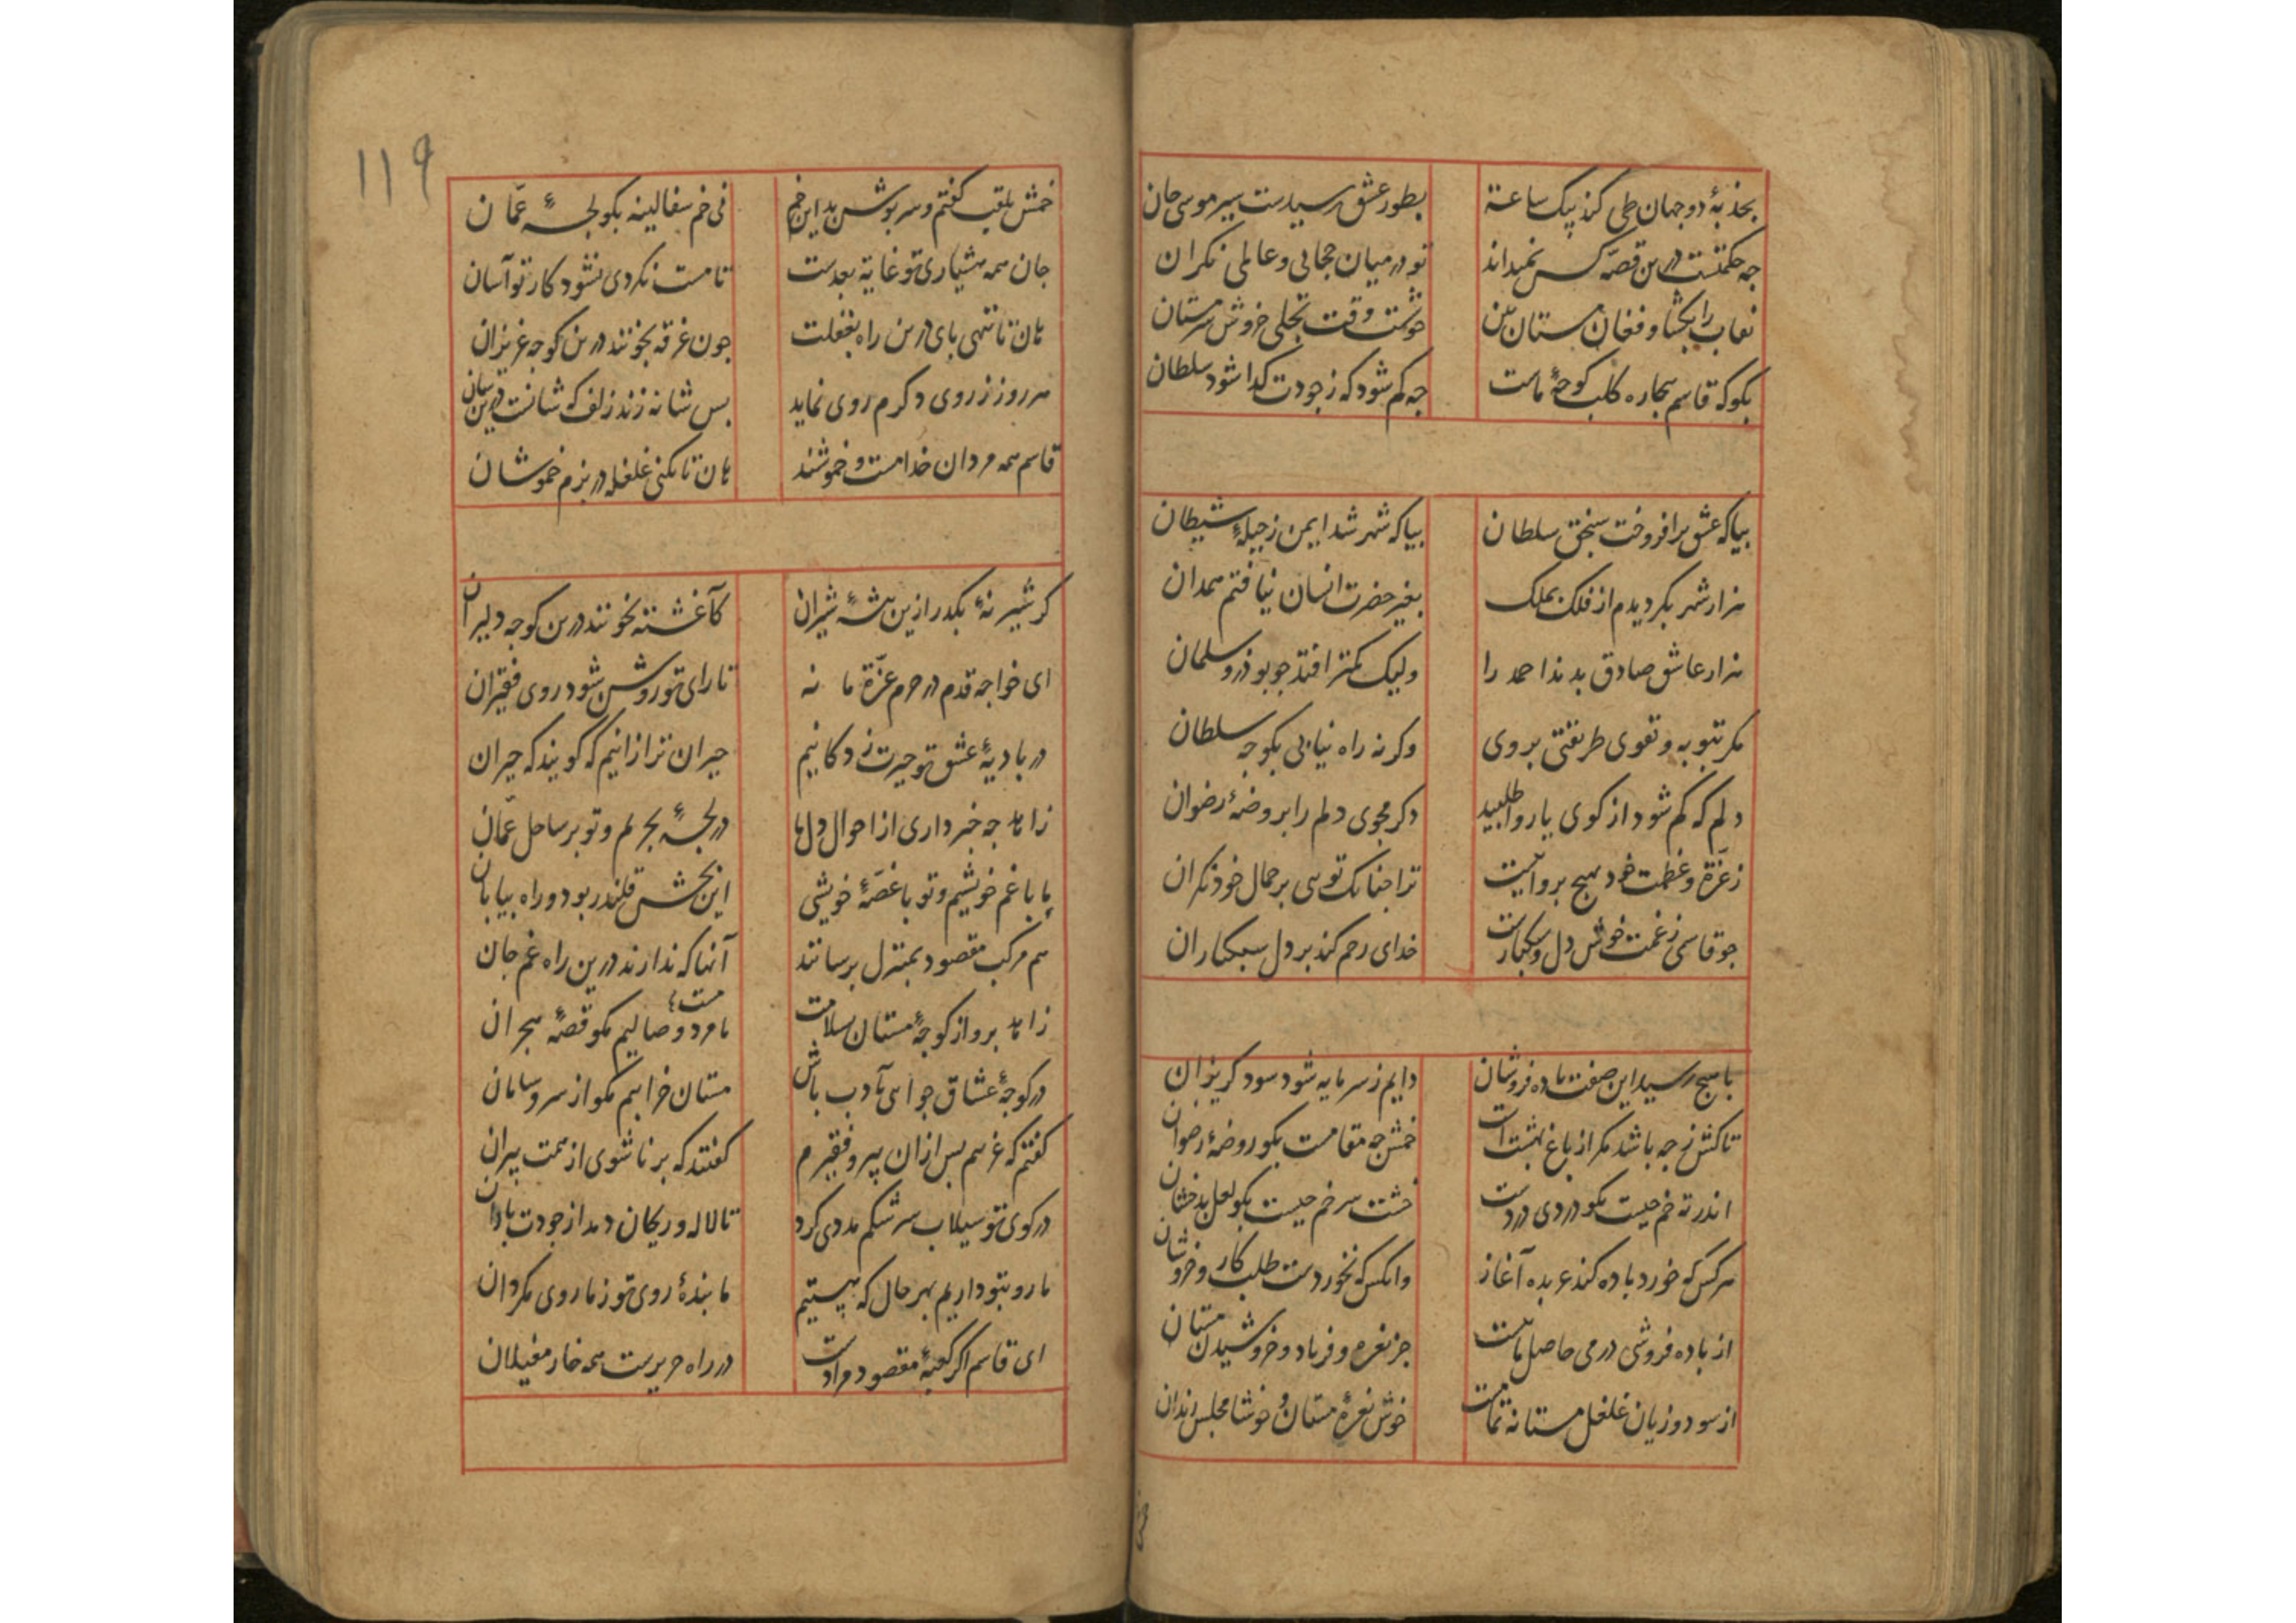 بجذبهٔ دو جهان طی کند بیک ساعة بطور عشق رسیدست سیر موسی جان
چه حکمتست درین قصه کس نمیداند تو در میان حجابی و عالمی نکران
نقاب را بکشا و فغان مستان بین خوشست وقت تجلی خروش سرمستان
بکو که قاسم بیجاره کلب کوچهٔ ماست چه کم شود که ز جودت کدا شود سلطان
بیا که عشق برافروخت سنجق سلطان بیا که شهر شد ایمن ز حیلهٔ شیطان
هزار شهر بکردیدم از فلک بملک بغیر حضرت انسان نیافتم همدان
هزار عاشق صادق بدند احمد را ولیک کمتر افتد چو بوذر و سلمان
مکر بتوبه و تقوی طریقتی بروی وکرنه راه نیابی بکوچه سلطان
دلم که کم شود از کوی یار واطلبید دکر مجوی دلم را بروضهٔ رضوان
ز عزة و عظمت خود هیچ پروا نیست ترا چنانک تویی بر جمال خود نکران
چو قاسمی ز غمت خوش دل و سبکبارست خدای رحم کند بر دل سبکباران
با هیچ رسید این صفت باده فروشان دایم ز سر مایه شود سود کریزان
تاکش ز چه باشد مکر از باغ بهشت است خمش چه مقامست بکو روضهٔ رضوان
اندر ته خم چیست مکو دردی دردست خشت سر خم چیست بکو لعل بدخشان
هر کس که خورد باده کند عربده آغاز وانکس که نخوردست طلب کار و خروشان
از باده فروشی در می حاصل ما نیست جز نعره و فریاد و خروشیدن مستان
از سود و زیان غلغل مستانه تمامست خوش نعرهٔ مستان و خوشا مجلس رندان
خمش
١١٩
خمش بلقب کفتم و سرپوش بد این خم نی خم سفالینه بکو لجهٔ عمّان
جان همه هشیاری تو غایة بعدست تا مست نکردی نشود کار تو آسان
هان تا ننهی پای درین راه بغفلت چون غرقه بخونند درین کوچه عزیزان
هر روز ز روی دکرم روی نماید بس شانه زند زلف که شانست درین سان
قاسم همه مردان خدا مست و خموشند هان تا نکنی غلغله در بزم خموشان
کر شیر نهٔ بکذر ازین بیشهٔ شیران کآغشته بخونند درین کوچه دلیران
ای خواجه قدم در حرم عزّة ما نه تا رای تو روشن شود روی فقیران
در بادیهٔ عشق تو حیرت زدکانیم حیران تر ازانیم که کویند که حیران
زاهد چه خبر داری از احوال دل ها در لجهٔ بحریم و تو بر ساحل عمّان
ما با غم خویشیم و تو با غصهٔ خویشی این بخش قلندر بود و راه بیابان
هم مرکب مقصود بمنزل برسانند آنها که ندارند درین راه غم جان
زاهد برو از کوچهٔ مستان سلامت ما مرد وصالیم مکو قصهٔ هجران
مست
در کوچهٔ عشاق چو آیی بادب باش مستان خرابیم مکو از سر و سامان
کفتم که غرسم بس ازان پیر و فقیرم کفتند که برنا شوی از همت پیران
در کوی تو سیلاب سرشکم مددی کرد تا لاله و ریحان دمد از جودت باران
ما رو بتو داریم بهر حال که هستیم ما بندهٔ روی تو ز ما روی مکردان
ای قاسم اکر کعبهٔ مقصود مرادست در راه حریرست همه خار مغیلان